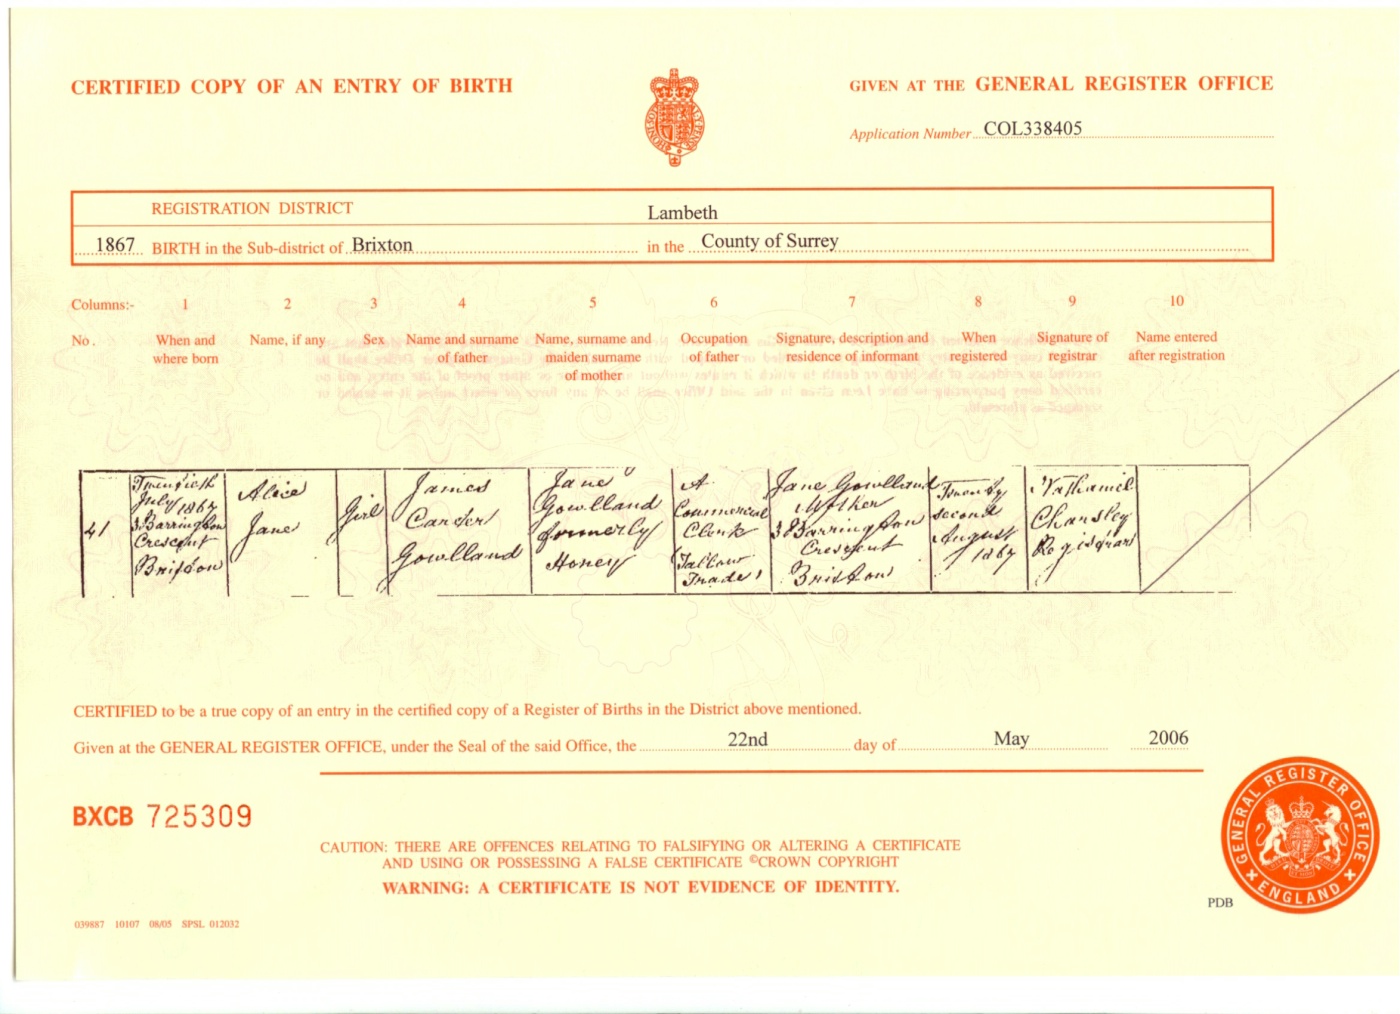 CERTIFIED COPY OF AN ENTRY OF BIRTH
GIVEN AT THE GENERAL REGISTER OFFICE
Application Number COL338405
REGISTRATION DISTRICT Lambeth
1867 BIRTH in the Sub-district of Brixton in the County of Surrey
Columns:- 1 2 3 4 5 6 7 8 9 10
No. When and where born
Name, if any
Sex
Name and surname of father
Name, surname and maiden surname of mother
Occupation of father
Signature, description and residence of informant
When registered
Signature of registrar
Name entered after registration
41
Twentieth
July 1867
3 Barrington
Crescent
Brixton
Alice
Jane
Girl
James
Carter
Gowlland
Jane
Gowlland
formerly
Honey
A
Commercial
Clerk
Tallow
Trade
Jane Gowlland
Mother
3 Barrington
Crescent
Brixton
Twenty
second
August
1867
Nathaniel
Chansley
Registrar
CERTIFIED to be a true copy of an entry in the certified copy of a Register of Births in the District above mentioned.
Given at the GENERAL REGISTER OFFICE, under the Seal of the said Office, the 22nd day of May 2006
BXCB 725309
CAUTION: THERE ARE OFFENCES RELATING TO FALSIFYING OR ALTERING A CERTIFICATE
AND USING OR POSSESSING A FALSE CERTIFICATE ©CROWN COPYRIGHT
WARNING: A CERTIFICATE IS NOT EVIDENCE OF IDENTITY.
GENERAL REGISTER OFFICE
ENGLAND
PDB
039887 10107 08/05 SPSL 012032